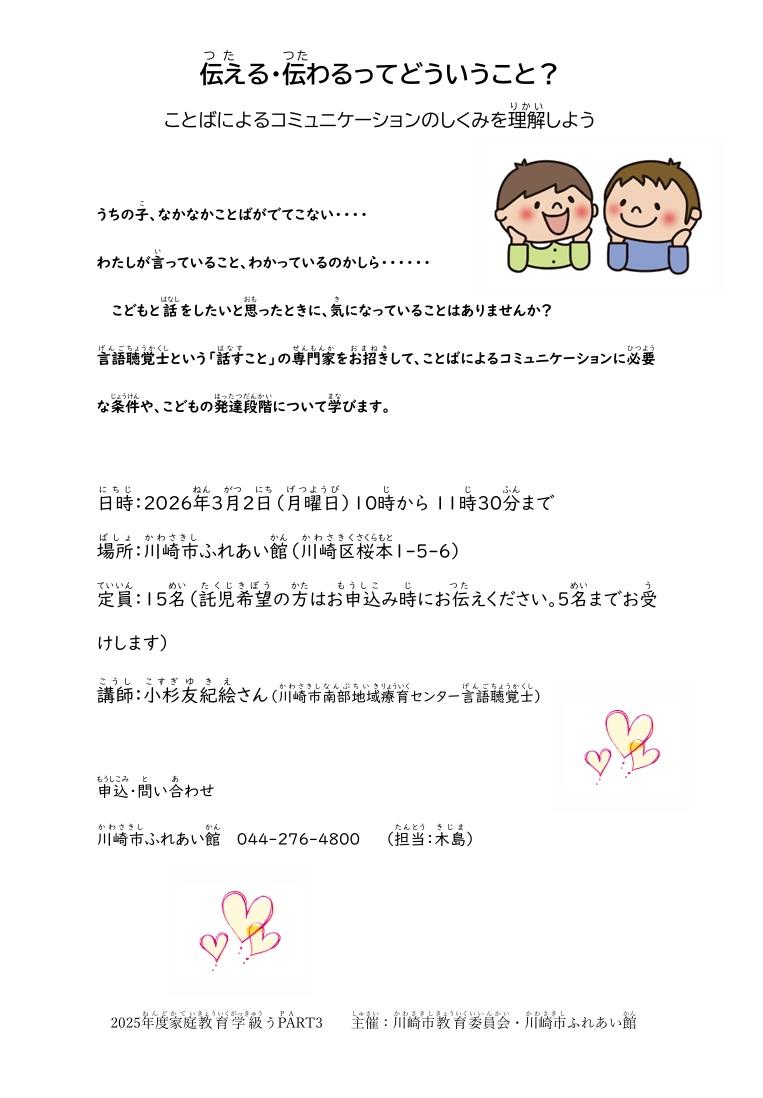 伝える・伝わるってどういうこと？
ことばによるコミュニケーションのしくみを理解しよう
うちの子、なかなかことばがでてこない・・・・
わたしが言っていること、わかっているのかしら・・・・・・
こどもと話をしたいと思ったときに、気になっていることはありませんか？
言語聴覚士という「話すこと」の専門家をお招きして、ことばによるコミュニケーションに必要
な条件や、こどもの発達段階について学びます。
日時：2026年3月2日（月曜日）10時から 11時30分まで
場所：川崎市ふれあい館（川崎区桜本1-5-6）
定員：15名（託児希望の方はお申込み時にお伝えください。5名までお受
けします）
講師：小杉友紀絵さん（川崎市南部地域療育センター言語聴覚士）
申込・問い合わせ
川崎市ふれあい館　044-276-4800　（担当：木島）
2025年度家庭教育学級うPART3　主催：川崎市教育委員会・川崎市ふれあい館